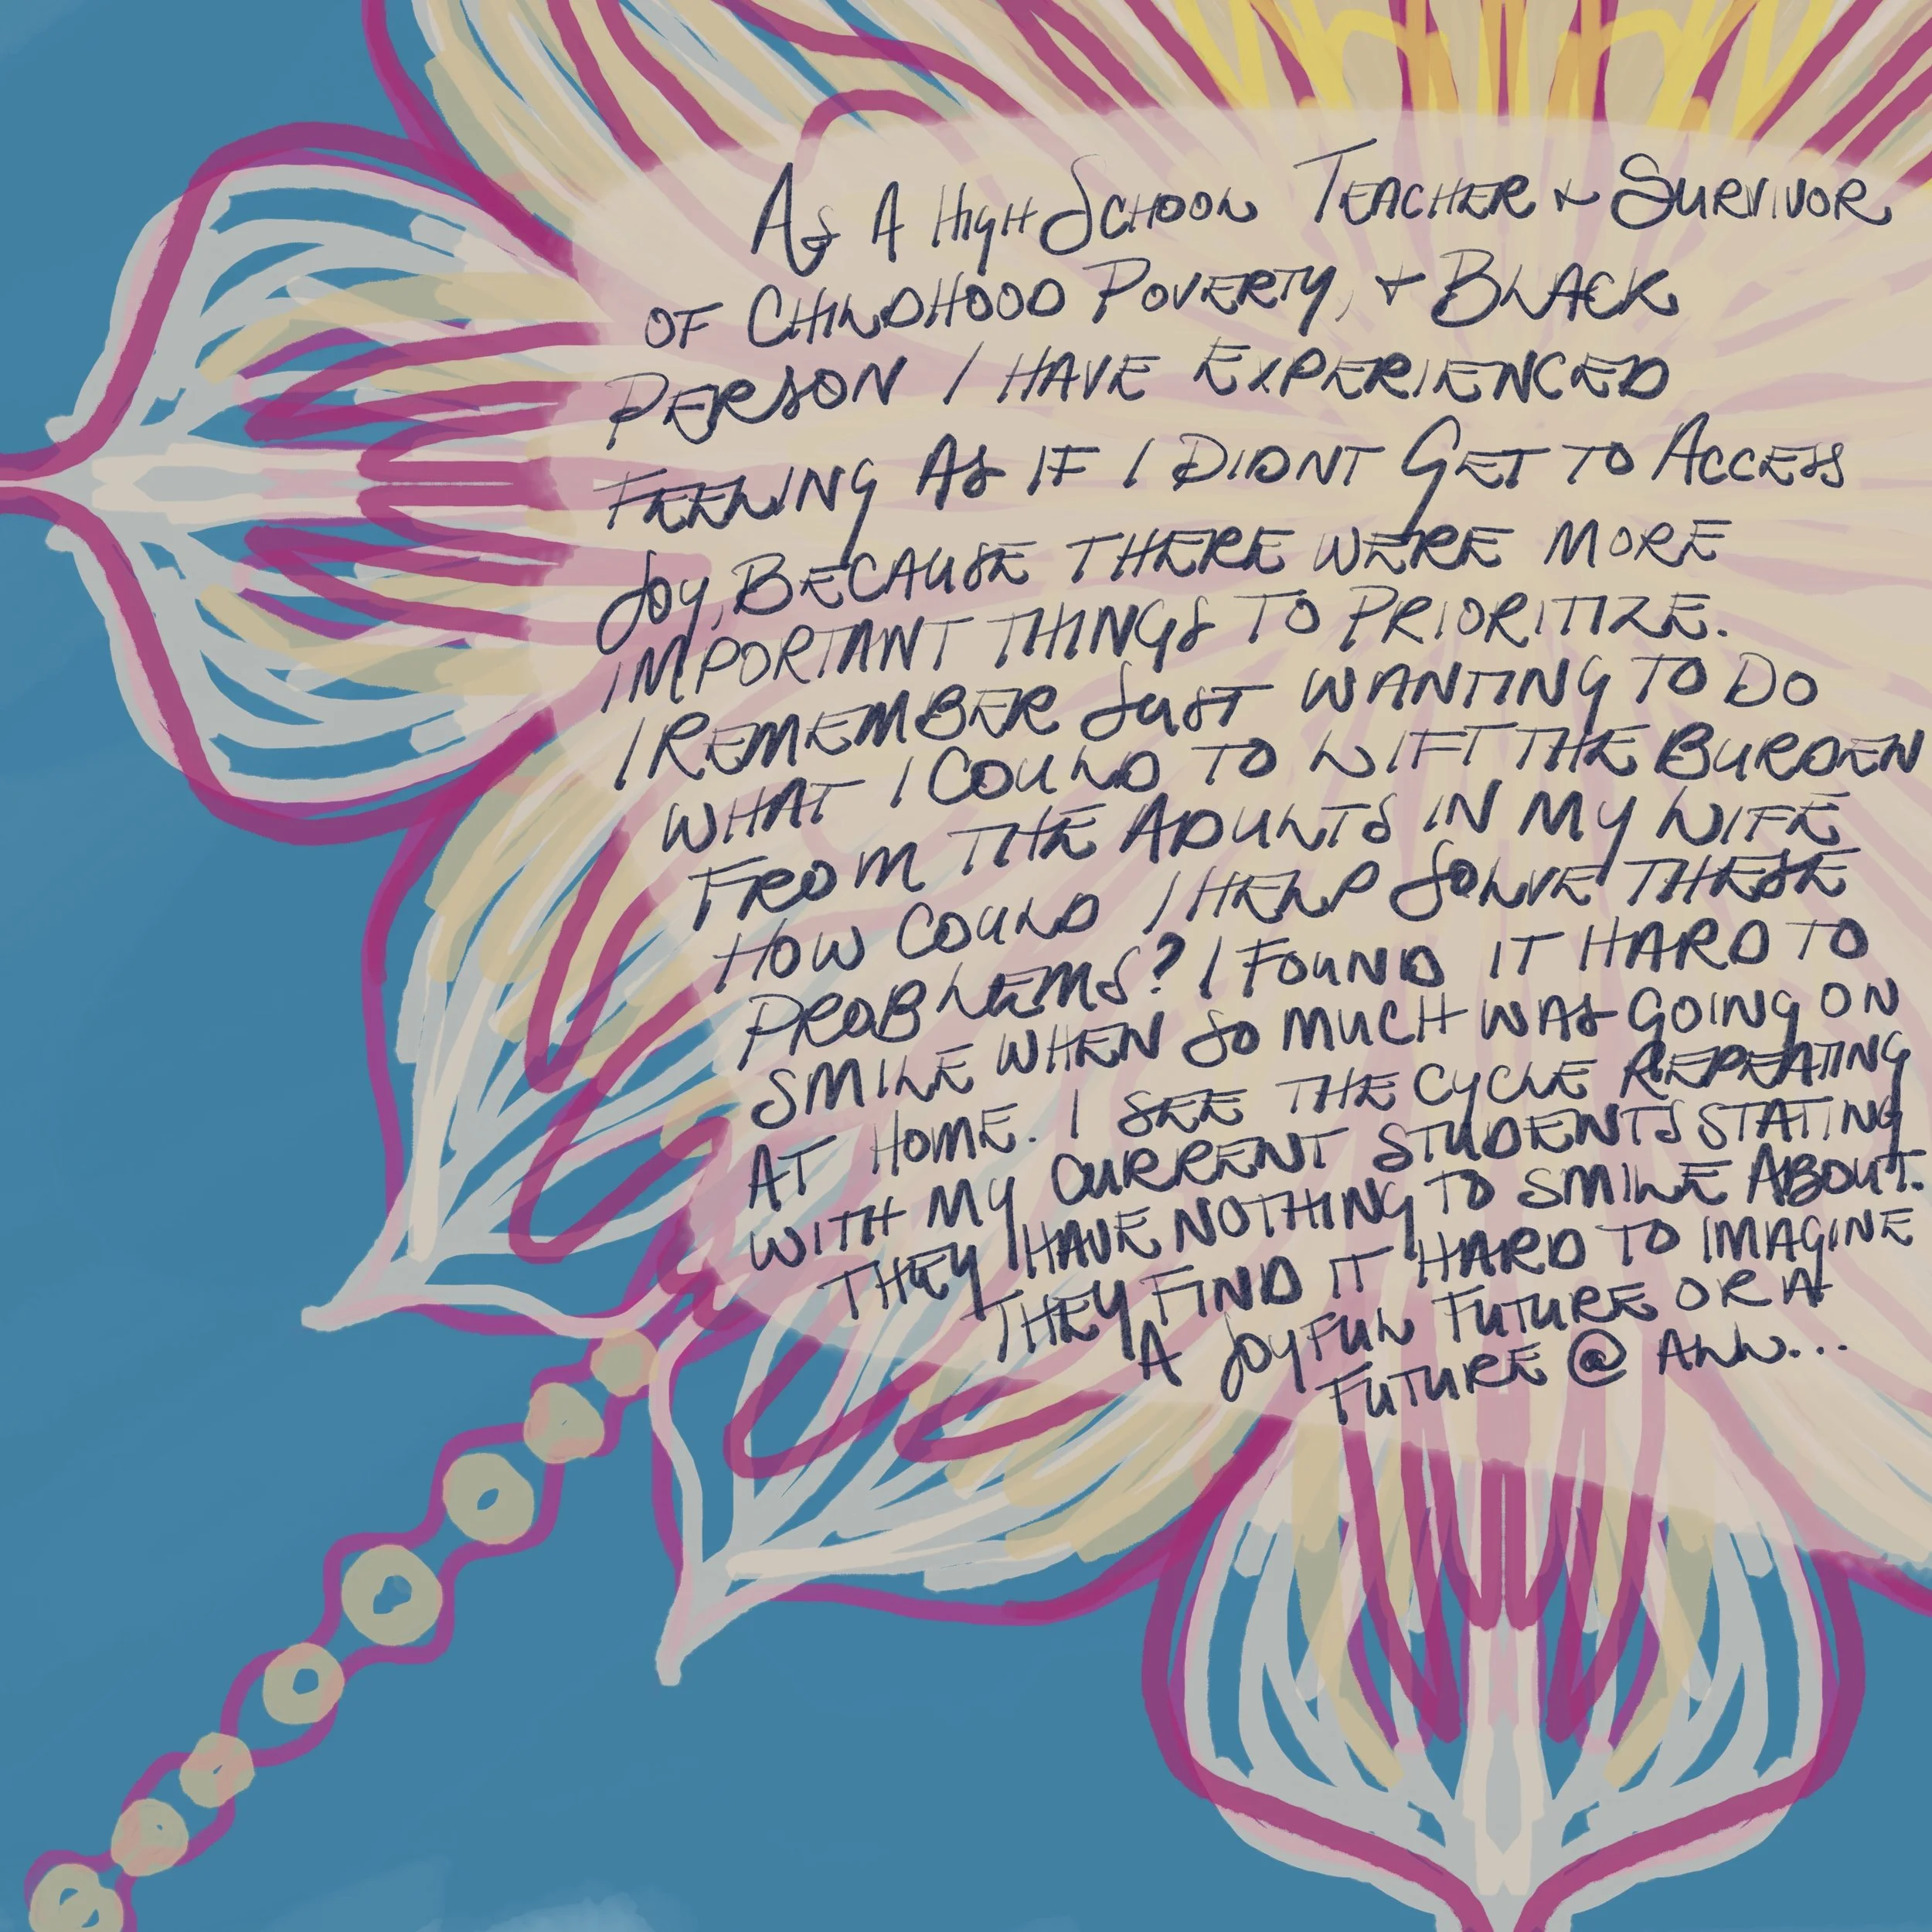 As A High School Teacher + Survivor
of Childhood Poverty, + Black
Person I have Experienced
Feeling As if I Didnt Get to Access
Joy, Because there were more
important things to Prioritize.
I Remember Just wanting to Do
what I Could to lift the Burden
From the Adults in my life
How Could I help Solve these
Problems? I Found it hard to
Smile when so much was going on
At Home. I see the cycle repeating
with my current students stating
They have nothing to smile about.
They find it hard to imagine
A Joyful future or a
future @ all...